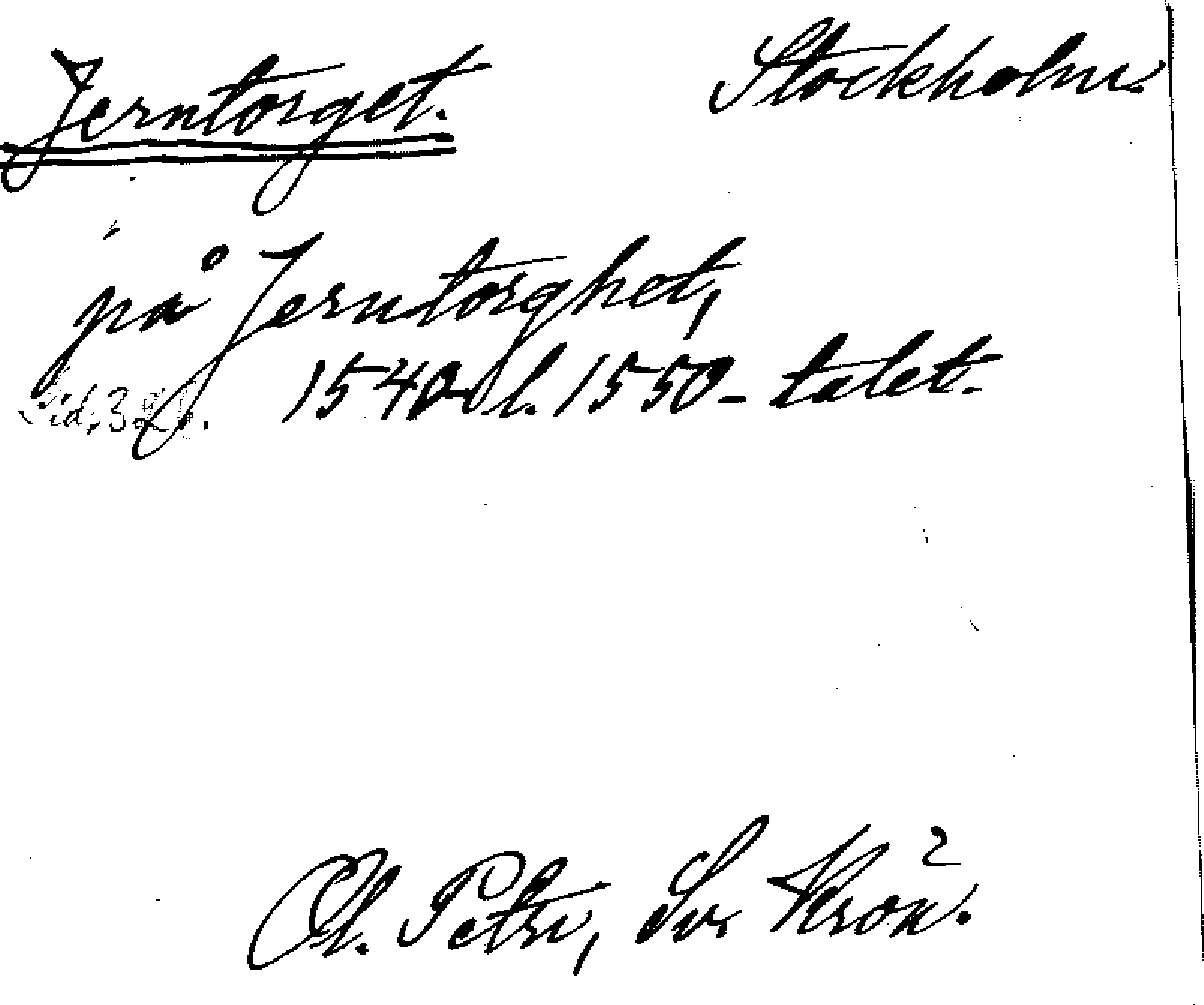 Jerntorget. Stockholm.
på Jerntorghet,
1540- l. 1550-talet.
Sid. 32
Ol. Petri, Sv. Krön. 2